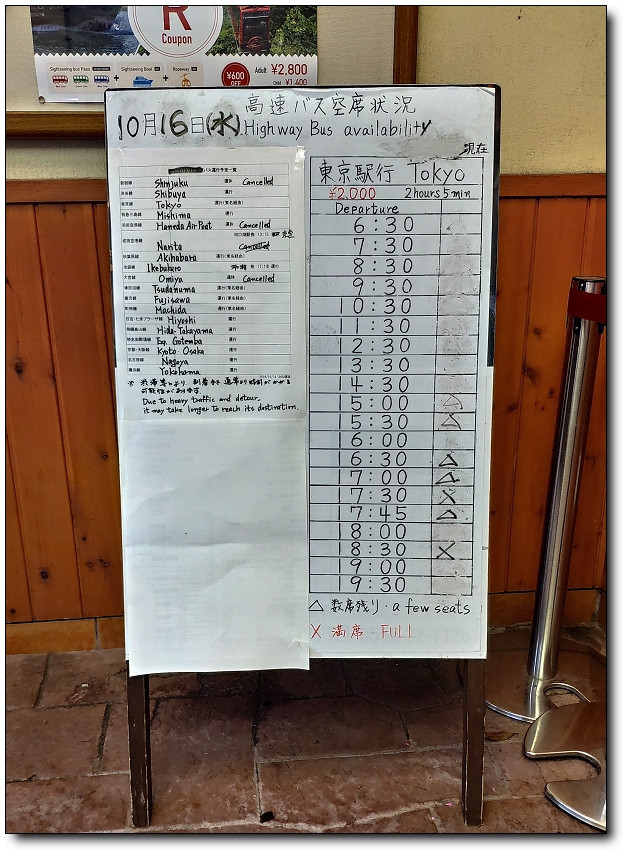 R
Coupon
Sightseeing bus Pass
Sightseeing Boat
Ropeway
¥600
OFF
Adult ¥2,800
Child ¥1,400
高速バス空席状況
10月16日(水) Highway Bus availability
現在
バス運行予定一覧
新宿線 Shinjuku 運休 Cancelled
渋谷線 Shibuya 運行
東京線 Tokyo 運行(東名経由)
Mishima 運行
羽田空港線 Haneda Air Port 運休 Cancelled
成田空港線 Narita Cancelled
秋葉原線 Akihabara 運行(東名経由)
池袋線 Ikebukuro
大宮線 Omiya 運休 Cancelled
Tsudanuma 運行(東名経由)
藤沢線 Fujisawa 運行
町田線 Machida 運行(東名経由)
Hiyoshi 運行
Hida-Takayama 運行
Exp. Gotemba 運行
京都・大阪線 Kyoto・Osaka 運行
名古屋線 Nagoya 運行
横浜線 Yokohama 運行
※ 渋滞等により 到着まで 通常より時間がかかる
可能性があります
Due to heavy traffic and detour.
it may take longer to reach its destination.
東京駅行 Tokyo
¥2,000 2hours 5min
Departure
6:30
7:30
8:30
9:30
10:30
11:30
12:30
13:30
14:30
15:00
15:30
16:00
16:30 △
17:00 △
17:30 X
17:45 △
18:00
18:30 X
19:00
19:30
△ 数席残り・a few seats
X 満席・FULL